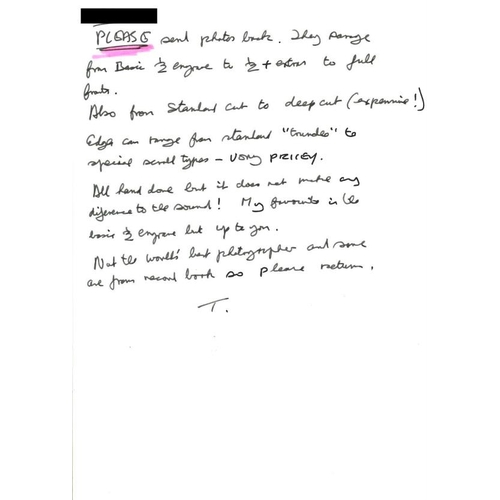 PLEASE send photos back. They range
from Basic ½ engrave to ½ + extras to full
fronts.
Also from Standard cut to deep cut (expensive!)
Edges can range from standard "rounded" to
special scroll types - VERY PRICEY.
All hand done but it does not make any
difference to the sound! My favourite is the
basic ½ engrave but up to you.
Not the world's best photographer and some
are from record book so please return.
T.